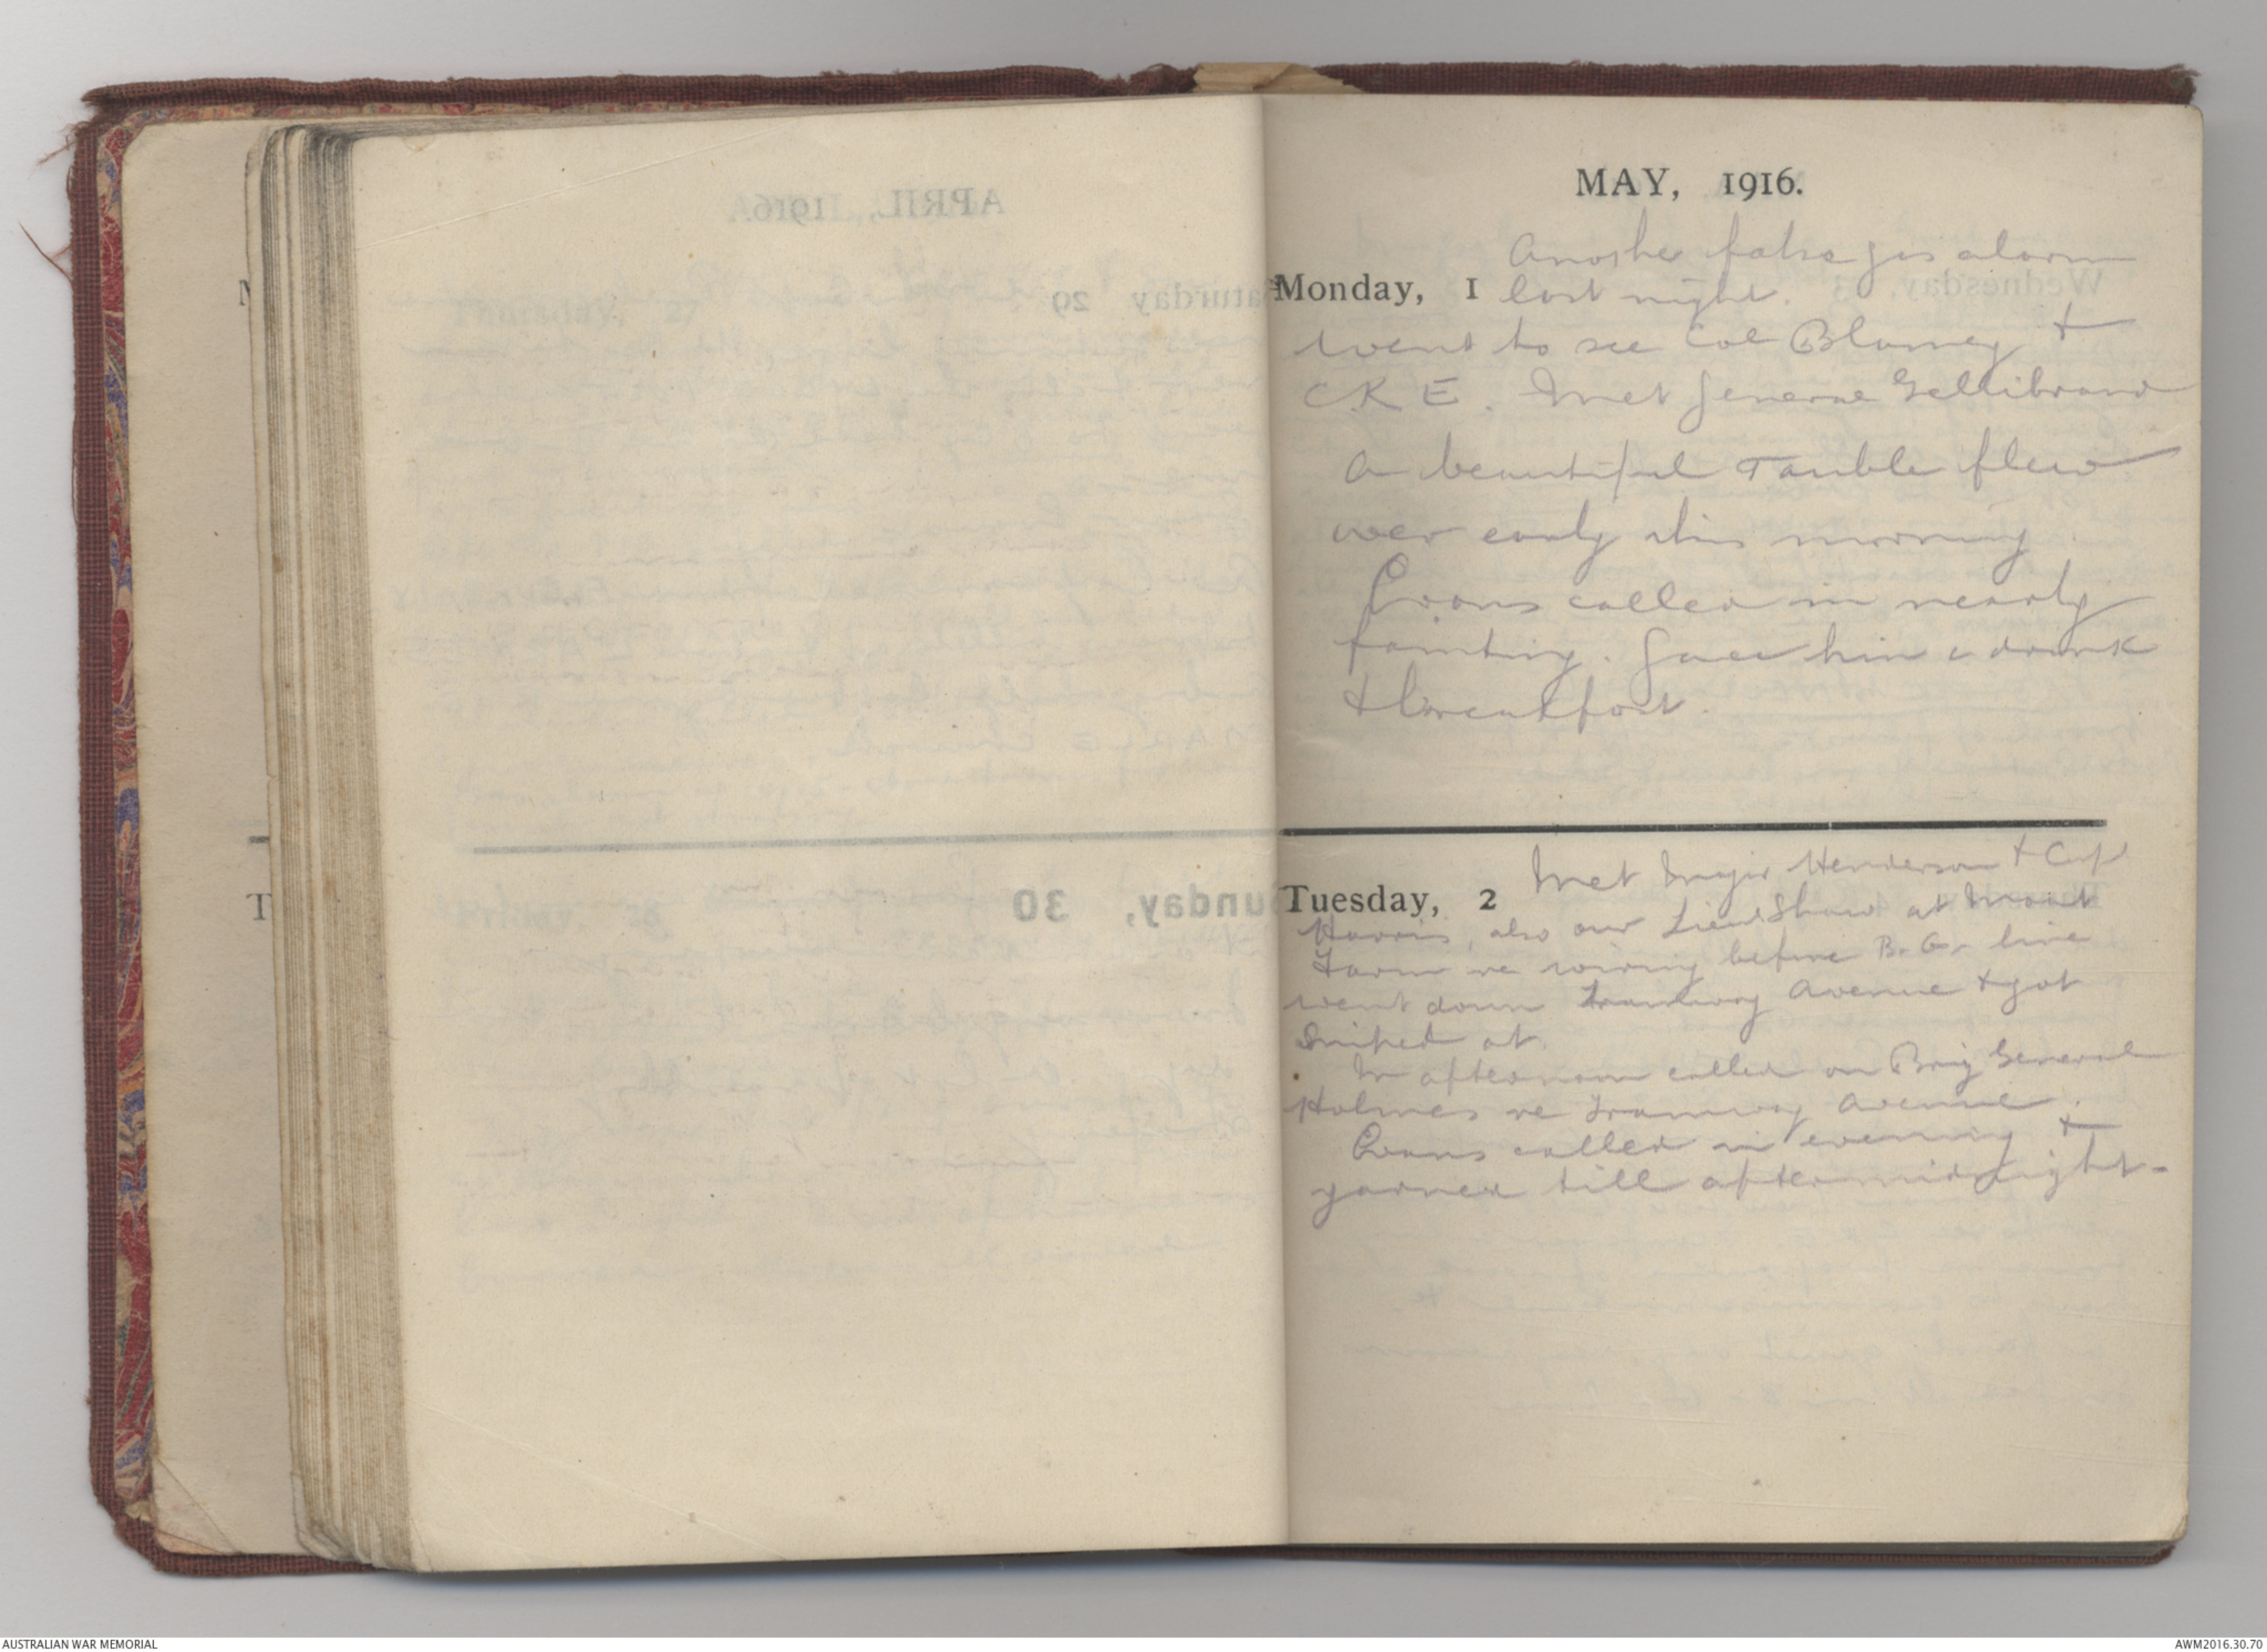 MAY, 1916.
Another false gas alarm
Monday, 1 last night.
went to see Col Blamey +
C.R.E. Met General Gellibrand
A beautiful Taube flew
over early this morning
Evans called in nearly
fainting. Gave him a drink
+ breakfast.
Met Major Henderson + Capt
Tuesday, 2
Harris, also our Lieut Shaw at Moat
Farm re wiring before B.G. line
went down Tramway Avenue + got
sniped at.
In afternoon called on Brig General
Holmes re Tramway Avenue.
Evans called in evening +
yarned till after midnight-
AUSTRALIAN WAR MEMORIAL
AWM2016.30.70